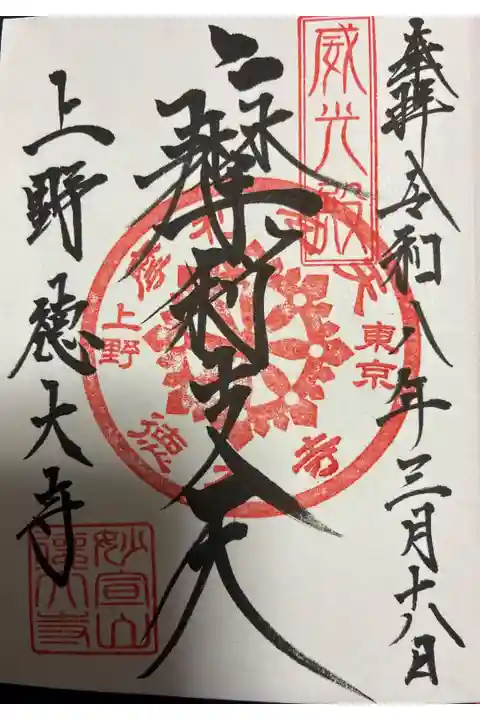 奉拝 令和八年三月十八日
威光殿
摩利支天
上野 東京
上野徳大寺
妙宣山
徳大寺